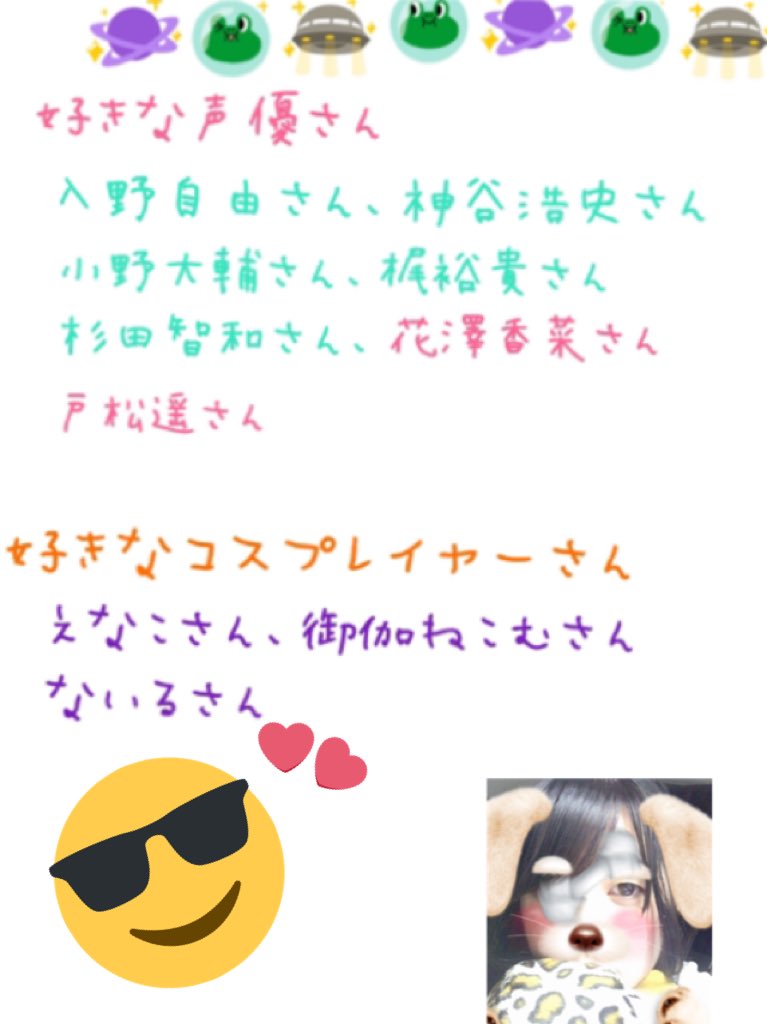 好きな声優さん
入野自由さん、神谷浩史さん
小野大輔さん、梶裕貴さん
杉田智和さん、花澤香菜さん
戸松遥さん
好きなコスプレイヤーさん
えなこさん、御伽ねこむさん
ないるさん